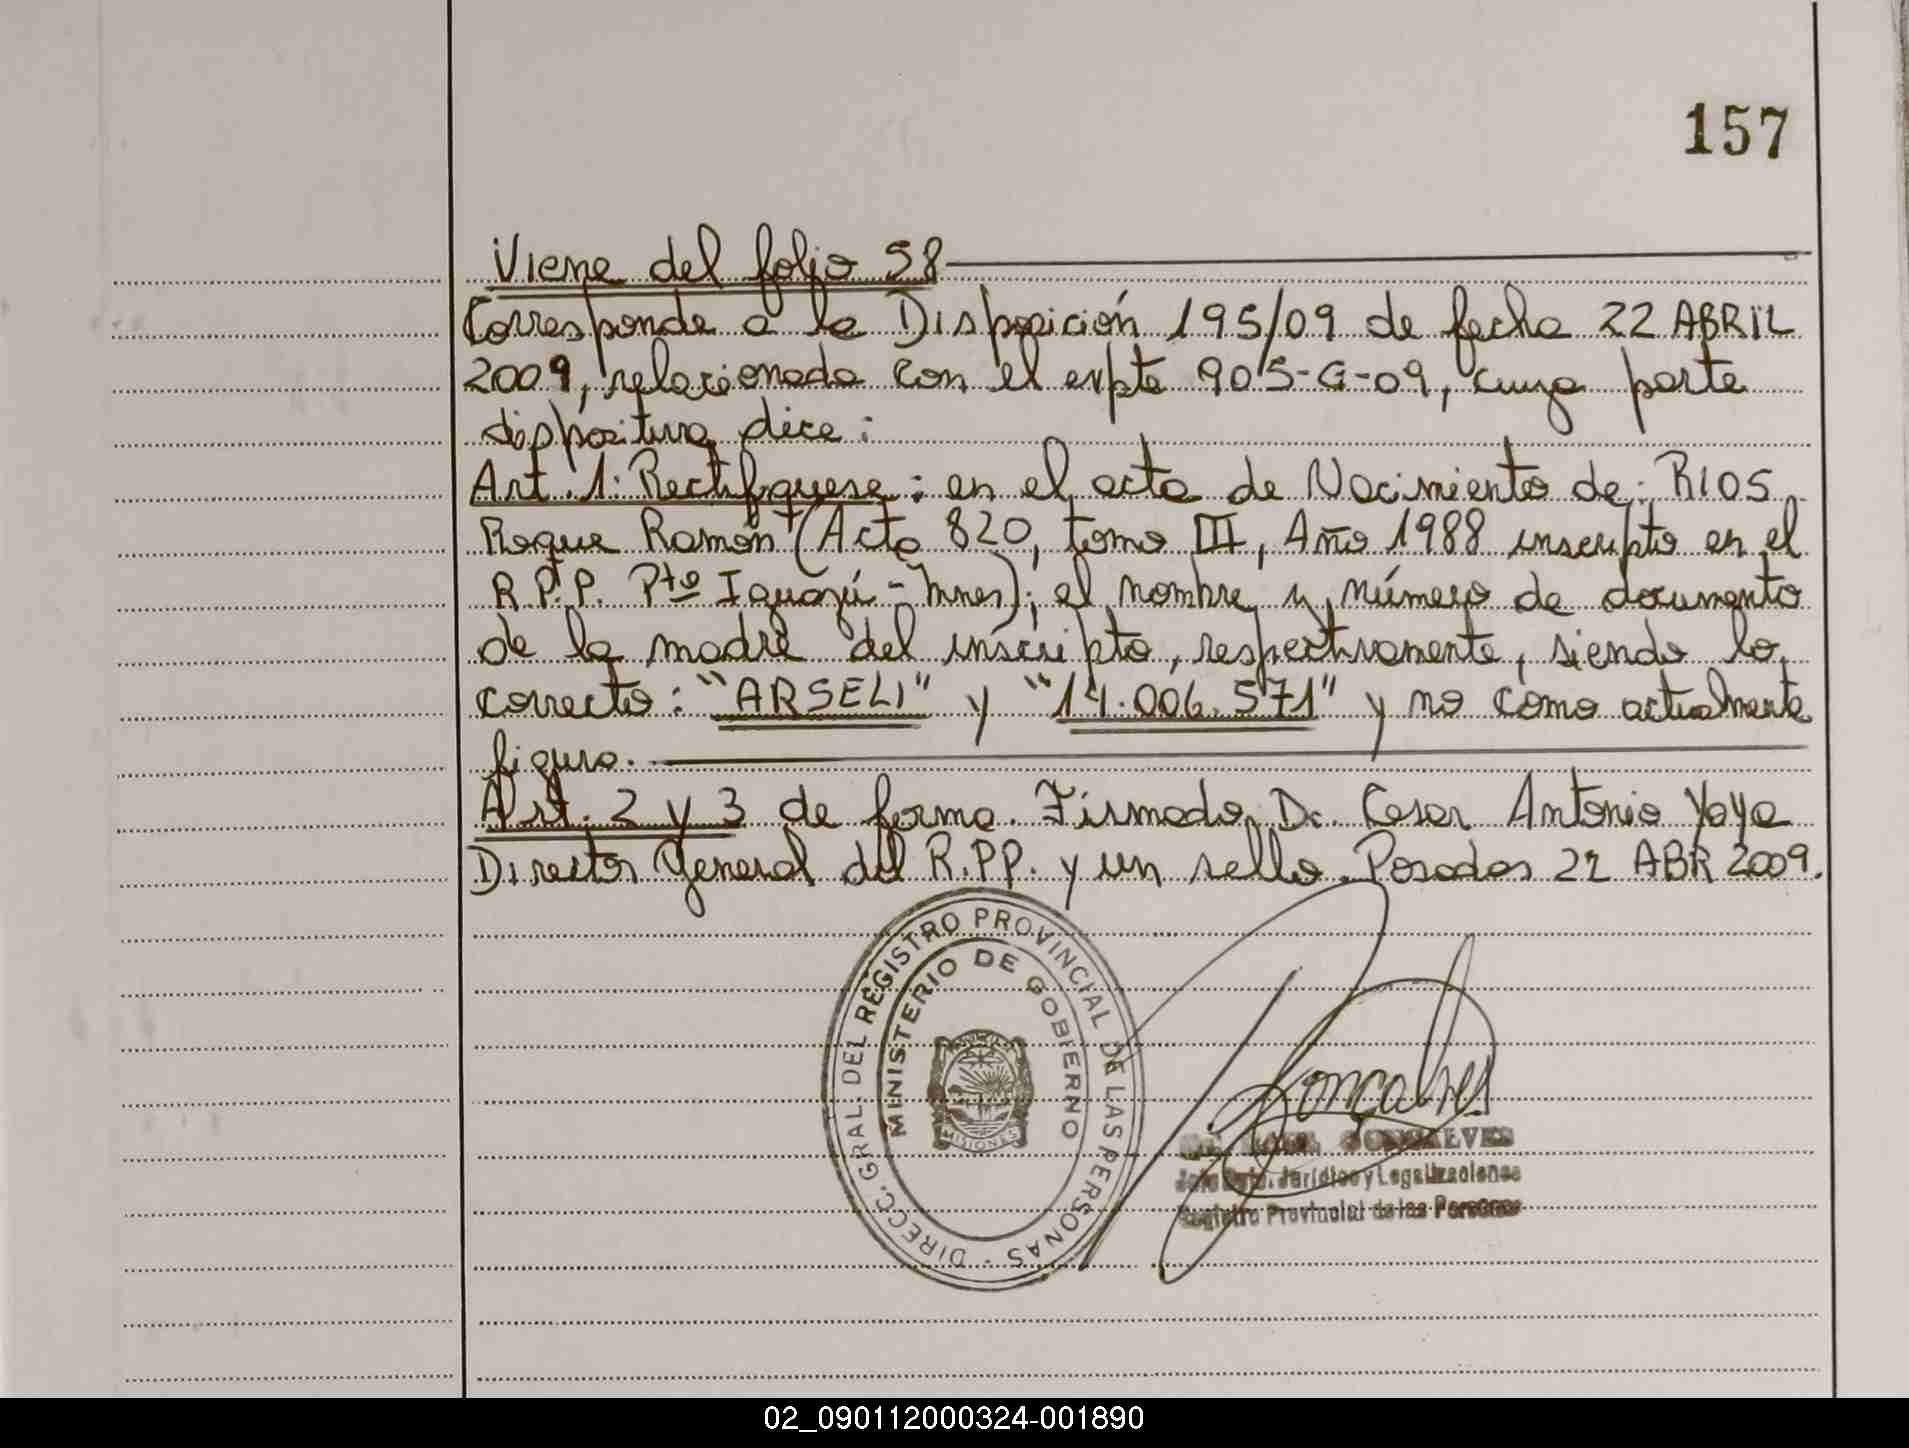 157
Viene del folio 58
Corresponde a la Disposición 195/09 de fecha 22 ABRIL
2009, relacionada con el expte 905-G-09, cuya parte
dispositiva dice:
Art. 1: Rectifíquese: en el acta de Nacimiento de: RIOS
Roque Ramón (Acta 820, tomo III, Año 1988 inscripto en el
R.P.P. Pto Iguazú - Mnes); el nombre y número de documento
de la madre del inscripto, respectivamente, siendo lo
correcto: "ARSELI" y "14.006.571" y no como actualmente
figura.
Art. 2 y 3 de forma. Firmado Dr. Cesar Antonio Yaya
Director General del R.PP. y un sello. Posadas 22 ABR 2009.
DIRECC. GRAL. DEL REGISTRO PROVINCIAL DE LAS PERSONAS -
MINISTERIO DE GOBIERNO
MISIONES
Gonçalves
GONCALVES
Jefe Dpto. Jurídico y Legalizaciones
Registro Provincial de las Personas
02_090112000324-001890